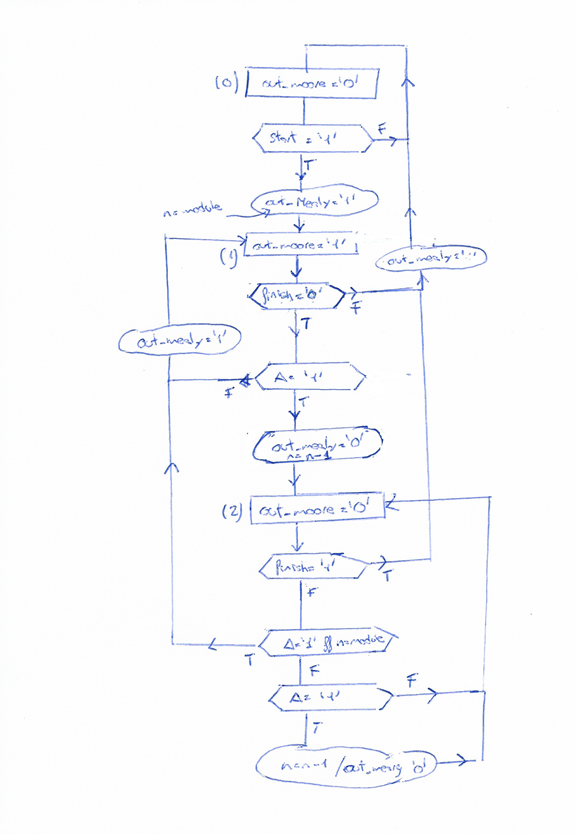 (0) out_moore = '0'
start = '1'
F
T
out_Mealy = '1'
n = module
(1) out_moore = '1'
out_mealy =
finish = '0'
F
T
out_mealy = '1'
A = '1'
F
T
out_mealy = '0'
n = n-1
(2) out_moore = '0'
finish = '1'
T
F
A = '1' && n = module
T
F
A = '1'
F
T
n = n-1 / out_mealy '0'